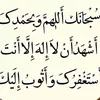 سُبْحَانَكَ اللَّهُمَّ وَبِحَمْدِكَ
أَشْهَدُ أَنْ لَا إِلَهَ إِلَّا أَنْتَ
أَسْتَغْفِرُكَ وَأَتُوبُ إِلَيْكَ